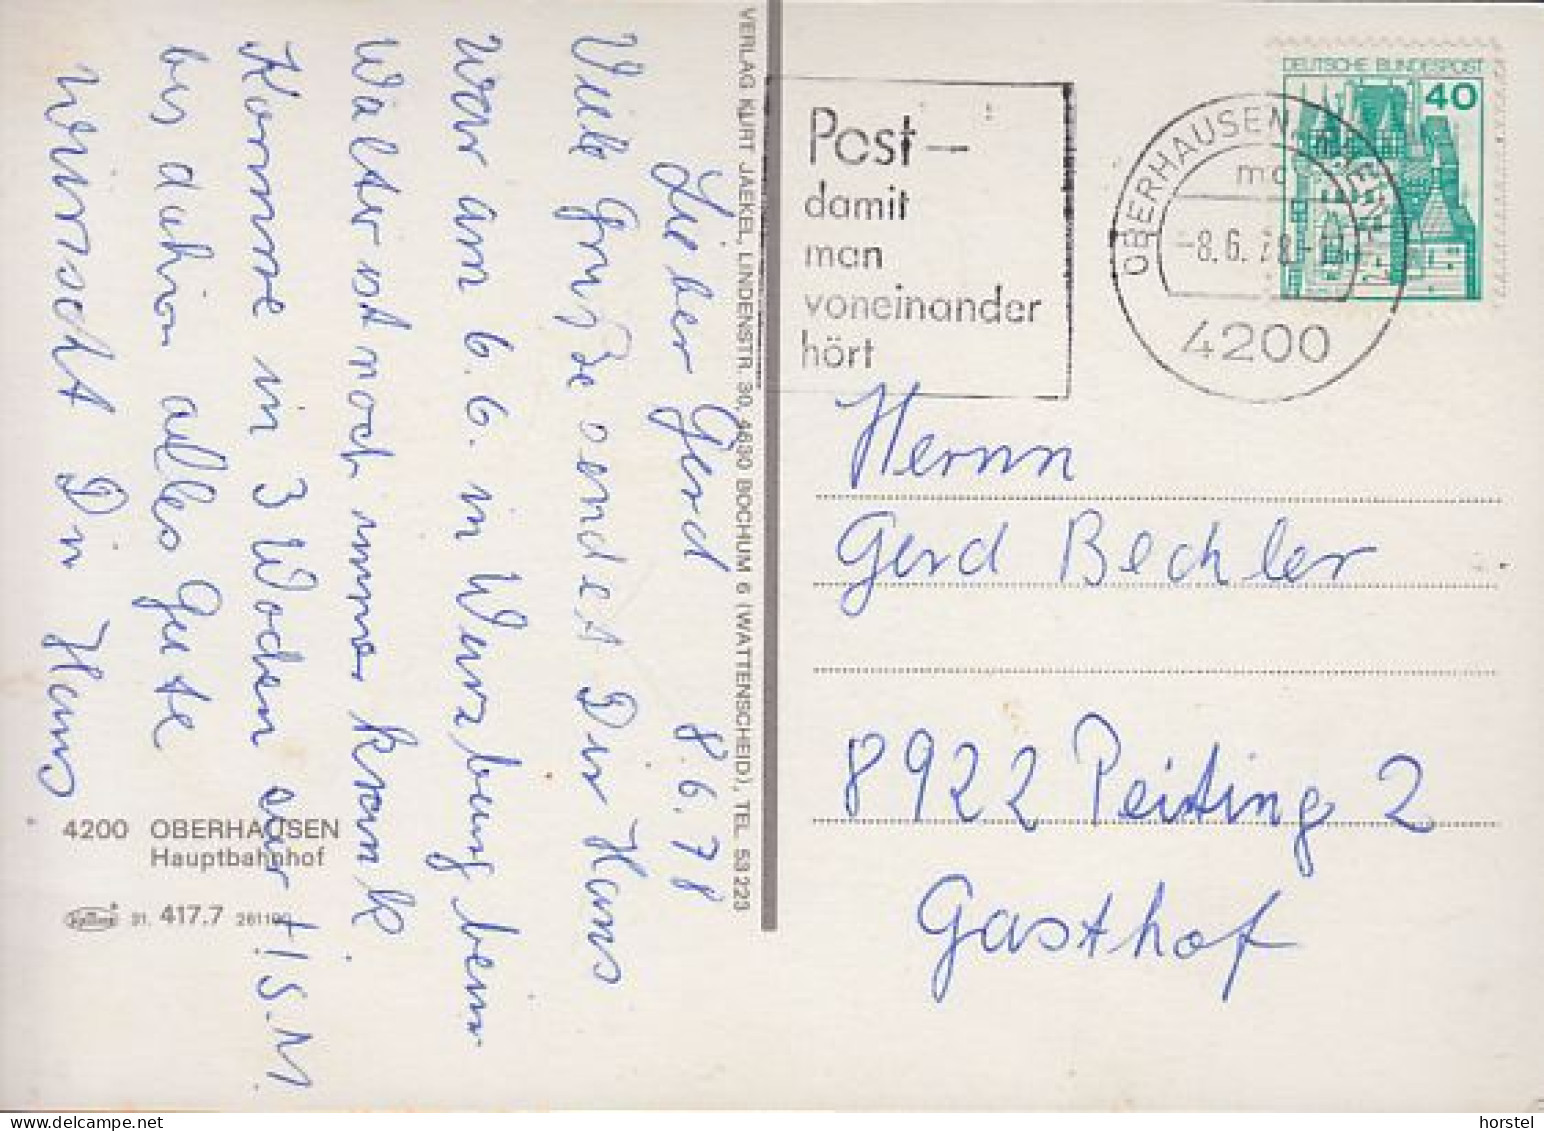 Lieber Gerd 8.6.78
Viele Grüße sendet Dir Hans
War am 6.6. in Würzburg beim
Walter ist noch immer krank
Komme in 3 Wochen
bis dahin alles Gute
wünscht Dir Hans
4200 OBERHAUSEN
Hauptbahnhof
31. 417.7 261190
VERLAG KURT JAEKEL, LINDENSTR. 30, 4630 BOCHUM 6 (WATTENSCHEID), TEL. 53 223
Post —
damit
man
voneinander
hört
DEUTSCHE BUNDESPOST
40
OBERHAUSEN
-8.6.78
4200
Herrn
Gerd Bechler
8922 Peiting 2
Gasthof
horstel